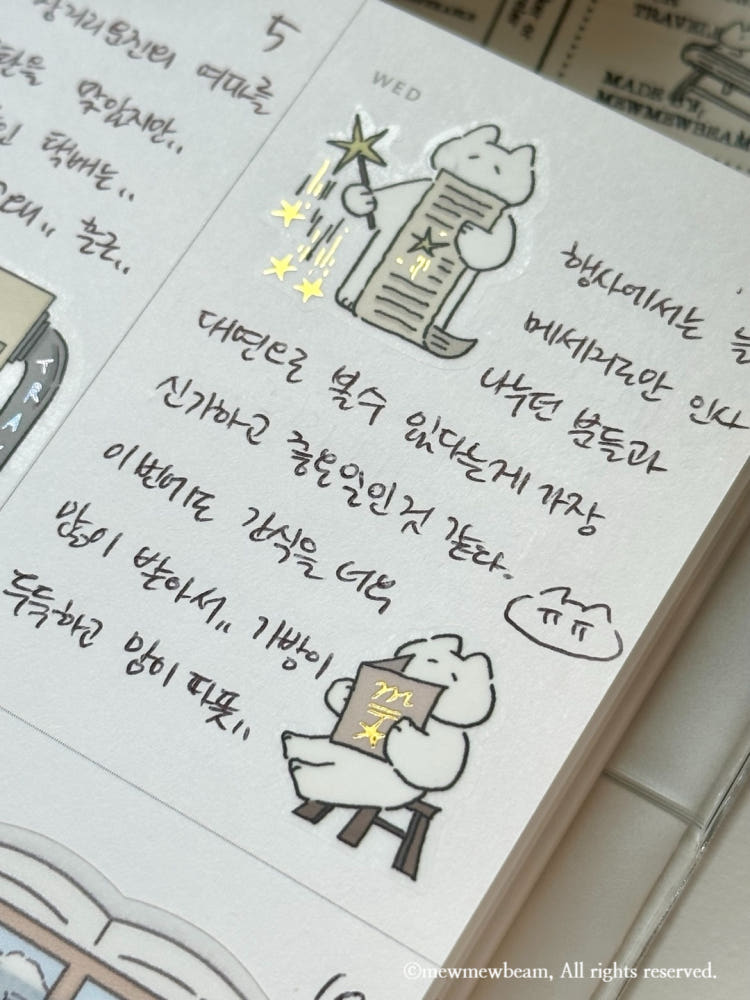 5
여파를
맞았지만..
택배는..
흘근..
WED
행사에서는 늘
메세지로만 인사
나누던 분들과
대면으로 볼수 있다는게 가장
신기하고 중요일인것 같다.
이번에도 간식을 너무
많이 받아서.. 가방이
두둑하고 맘이 따뜻..
TRA
TRAVEL
MADE BY.
MEWMEWBEAM
©mewmewbeam, All rights reserved.